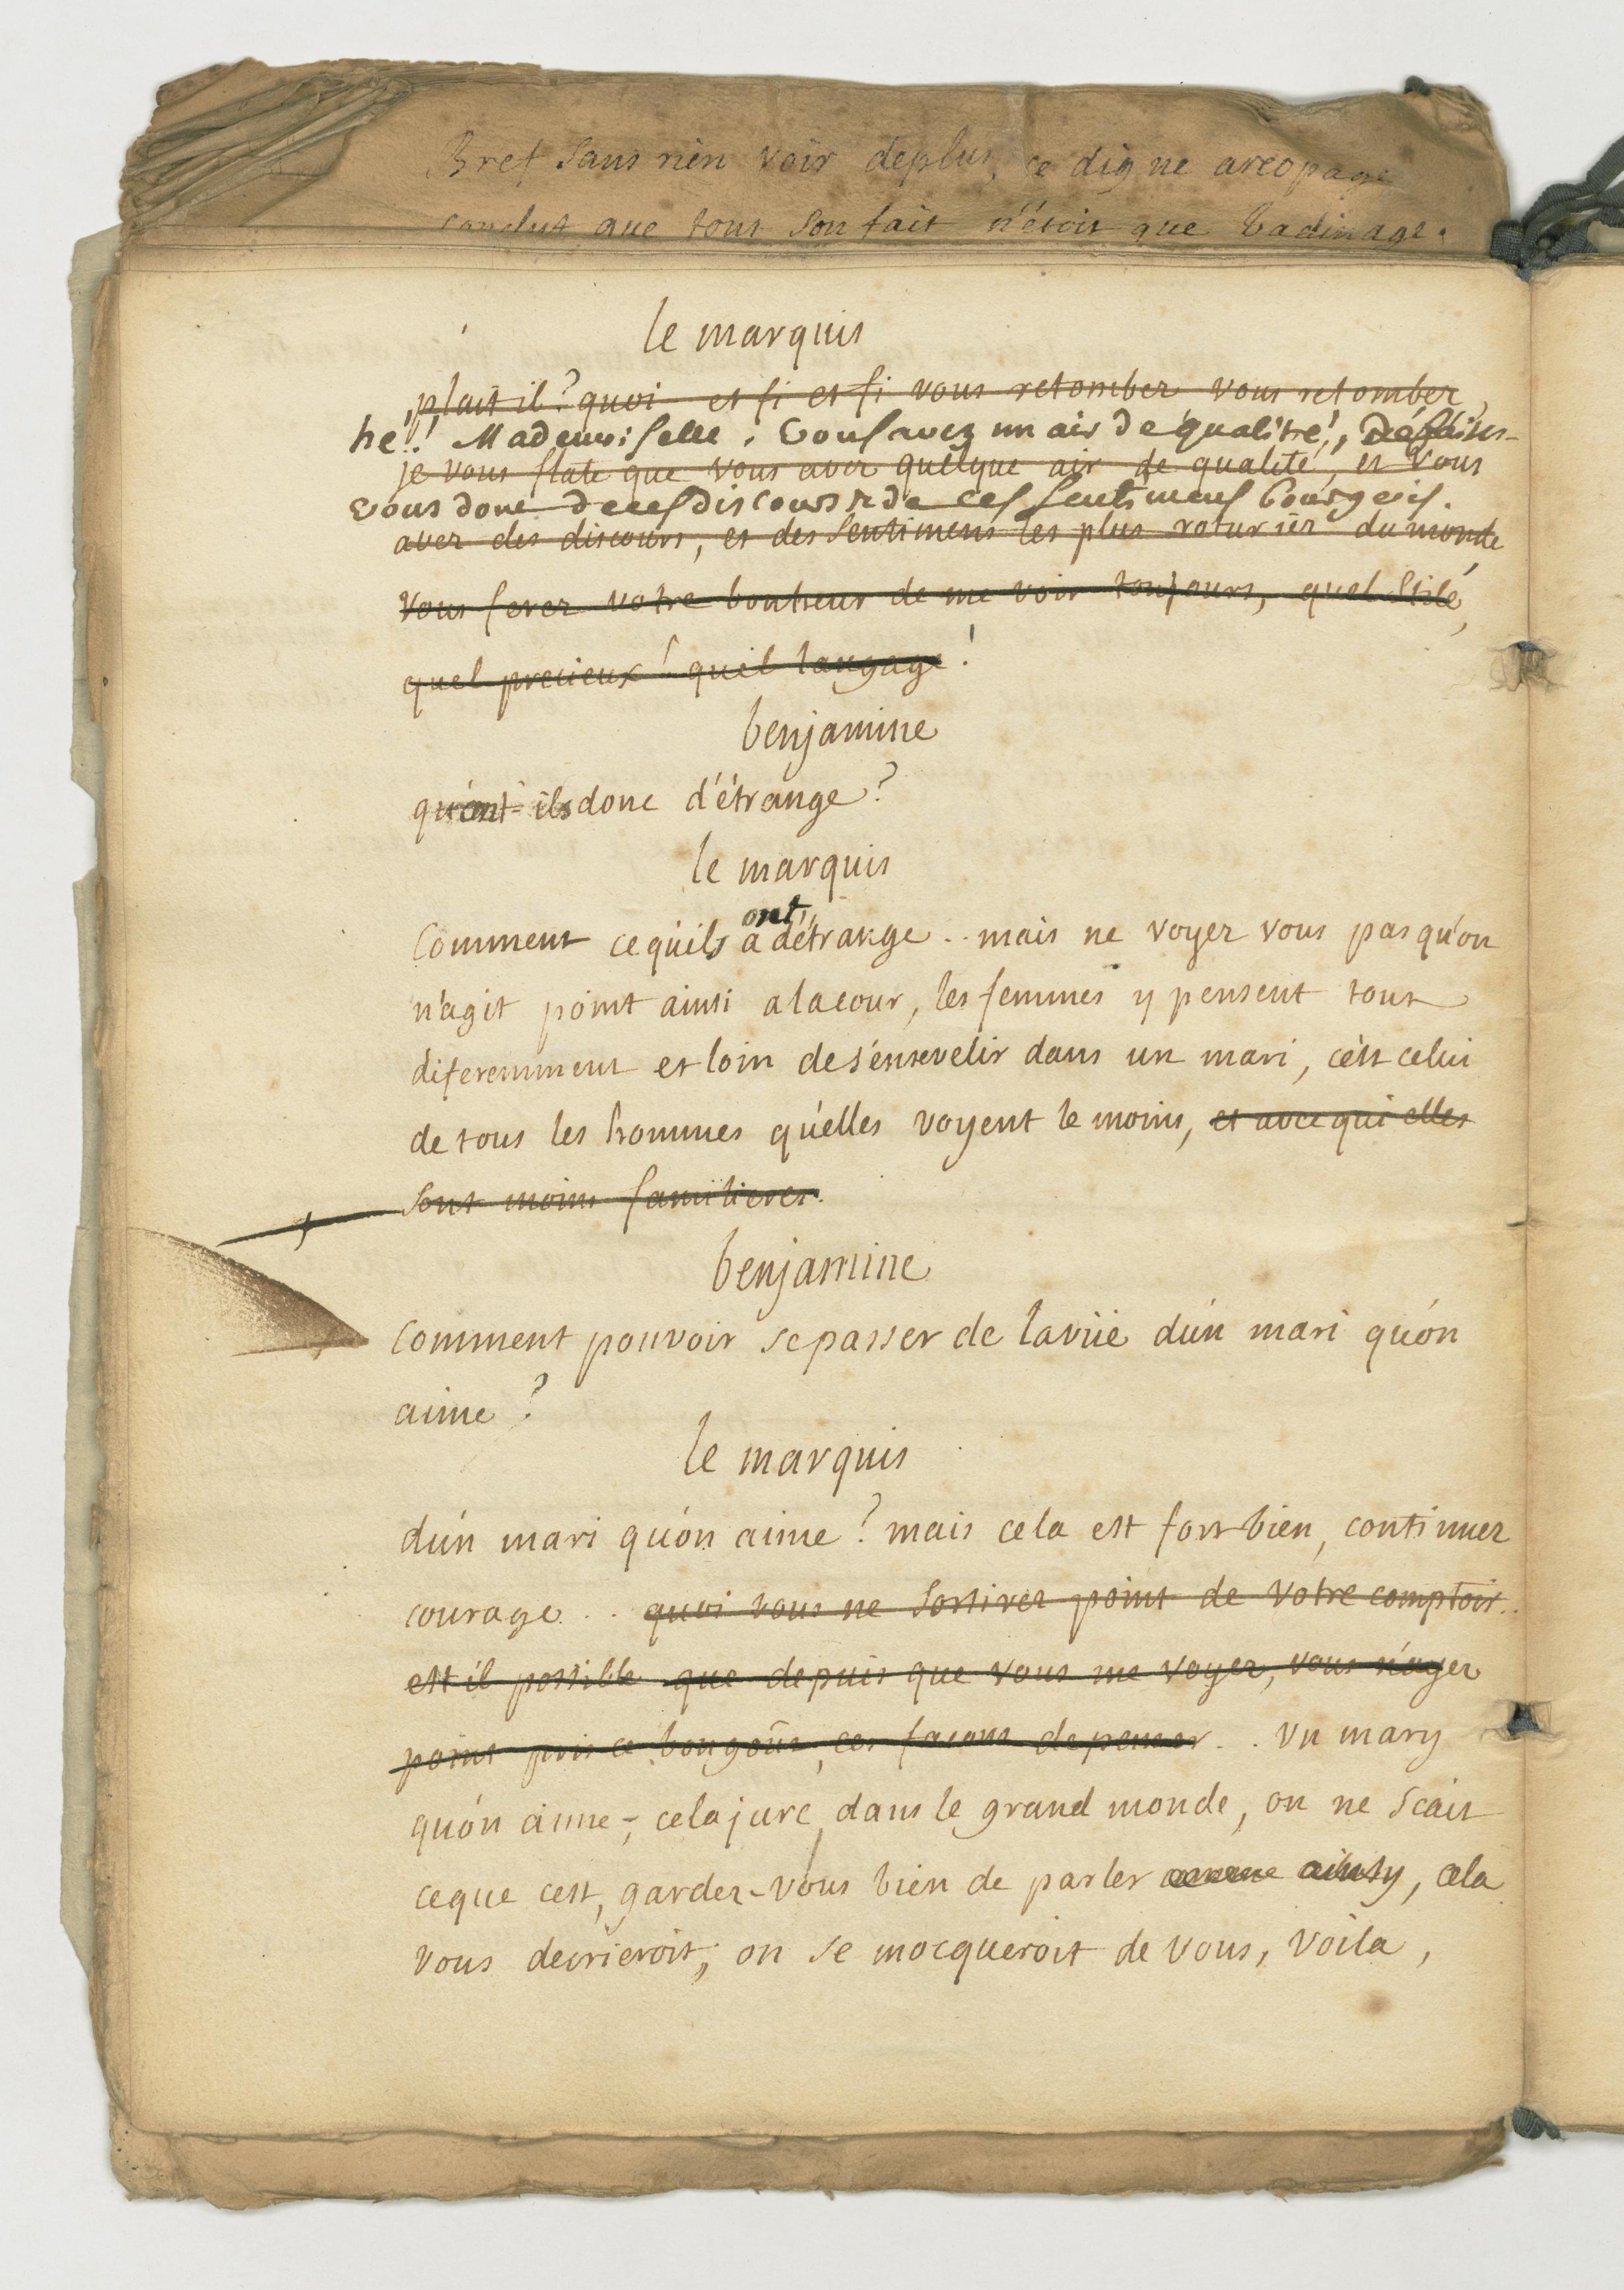 Bref sans rien voir deplus, ce digne areopage
conclut que tout son fait n'étoit que badinage.
le marquis
plait il? quoi et fi et fi vous retomber vous retomber,
he! Mademoiselle, vous avez un air de qualité!, Défaites-
je vous flate que vous aver quelque air de qualité, et vous
vous donc de ces discours & de ces sentimens bourgeois.
aver des discours, et des sentimens les plus roturier du monde
vous ferer votre bonheur de me voir toujours, quel stile,
quel precieux! quel langage!
benjamine
qu'ont-ils donc d'étrange?
le marquis
ont
Comment cequ'ils a d'étrange.. mais ne voyer vous pas qu'on
n'agit point ainsi alacour, les femmes y pensent tout
diferemment et loin de s'ensevelir dans un mari, c'est celui
de tous les hommes qu'elles voyent le moins, et avec qui elles
sont moins familieres.
benjamine
Comment pouvoir sepasser de lavüe d'un mari qu'on
aime?
le marquis
d'un mari qu'on aime? mais cela est fort bien, continuer
courage.. quoi vous ne sortirez point de votre comptoir..
est il possible que depuis que vous me voyer, vous n'ayer
point pris ce bongoût, ces facons depenser.. un mary
qu'on aime; celajure dans le grand monde, on ne scait
ceque cest, garder-vous bien de parler ainsy, cela
vous decrieroit, on se mocqueroit de vous, voila,